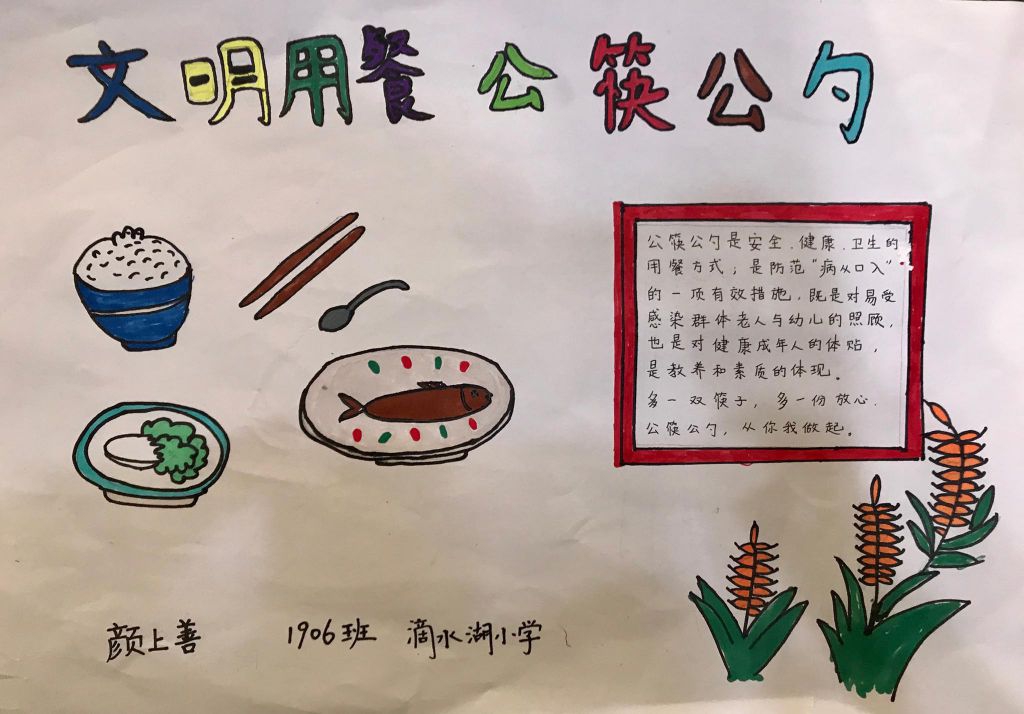 文明用餐 公筷公勺
公筷公勺是安全、健康、卫生的
用餐方式；是防范“病从口入”
的一项有效措施，既是对易受
感染群体老人与幼儿的照顾，
也是对健康成年人的体贴，
是教养和素质的体现。
多一双筷子，多一份放心.
公筷公勺，从你我做起。
颜上善 1906班 滴水湖小学